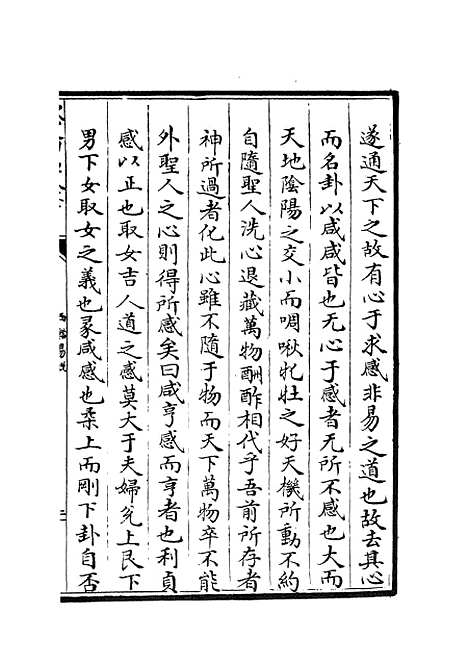 遂通天下之故有心于求感非易之道也故去其心
而名卦以咸咸皆也无心于感者无所不感也大而
天地陰陽之交小而啁啾牝牡之好天機所動不約
自隨聖人洗心退藏萬物酬酢相代乎吾前所存者
神所過者化此心雖不隨于物而天下萬物卒不能
外聖人之心則得所感矣曰咸亨感而亨者也利貞
感以正也取女吉人道之感莫大于夫婦兊上艮下
男下女取女之義也彖咸感也柔上而剛下卦自否